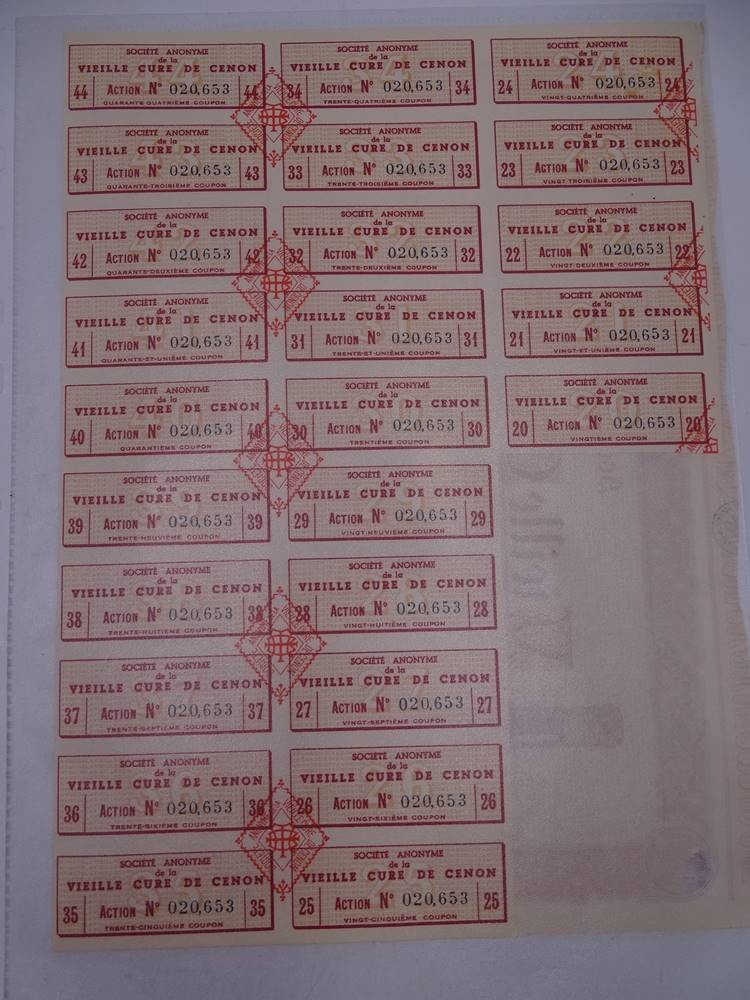 SOCIÉTÉ ANONYME
de la
VIEILLE CURE DE CENON
44 ACTION N° 020,653 44
QUARANTE-QUATRIÈME COUPON
SOCIÉTÉ ANONYME
de la
VIEILLE CURE DE CENON
34 ACTION N° 020,653 34
TRENTE-QUATRIÈME COUPON
SOCIÉTÉ ANONYME
de la
VIEILLE CURE DE CENON
24 ACTION N° 020,653 24
VINGT-QUATRIÈME COUPON
SOCIÉTÉ ANONYME
de la
VIEILLE CURE DE CENON
43 ACTION N° 020,653 43
QUARANTE-TROISIÈME COUPON
SOCIÉTÉ ANONYME
de la
VIEILLE CURE DE CENON
33 ACTION N° 020,653 33
TRENTE-TROISIÈME COUPON
SOCIÉTÉ ANONYME
de la
VIEILLE CURE DE CENON
23 ACTION N° 020,653 23
VINGT-TROISIÈME COUPON
SOCIÉTÉ ANONYME
de la
VIEILLE CURE DE CENON
42 ACTION N° 020,653 42
QUARANTE-DEUXIÈME COUPON
SOCIÉTÉ ANONYME
de la
VIEILLE CURE DE CENON
32 ACTION N° 020,653 32
TRENTE-DEUXIÈME COUPON
SOCIÉTÉ ANONYME
de la
VIEILLE CURE DE CENON
22 ACTION N° 020,653 22
VINGT-DEUXIÈME COUPON
SOCIÉTÉ ANONYME
de la
VIEILLE CURE DE CENON
41 ACTION N° 020,653 41
QUARANTE-ET-UNIÈME COUPON
SOCIÉTÉ ANONYME
de la
VIEILLE CURE DE CENON
31 ACTION N° 020,653 31
TRENTE-ET-UNIÈME COUPON
SOCIÉTÉ ANONYME
de la
VIEILLE CURE DE CENON
21 ACTION N° 020,653 21
VINGT-ET-UNIÈME COUPON
SOCIÉTÉ ANONYME
de la
VIEILLE CURE DE CENON
40 ACTION N° 020,653 40
QUARANTIÈME COUPON
SOCIÉTÉ ANONYME
de la
VIEILLE CURE DE CENON
30 ACTION N° 020,653 30
TRENTIÈME COUPON
SOCIÉTÉ ANONYME
de la
VIEILLE CURE DE CENON
20 ACTION N° 020,653 20
VINGTIÈME COUPON
SOCIÉTÉ ANONYME
de la
VIEILLE CURE DE CENON
39 ACTION N° 020,653 39
TRENTE-NEUVIÈME COUPON
SOCIÉTÉ ANONYME
de la
VIEILLE CURE DE CENON
29 ACTION N° 020,653 29
VINGT-NEUVIÈME COUPON
SOCIÉTÉ ANONYME
de la
VIEILLE CURE DE CENON
38 ACTION N° 020,653 38
TRENTE-HUITIÈME COUPON
SOCIÉTÉ ANONYME
de la
VIEILLE CURE DE CENON
28 ACTION N° 020,653 28
VINGT-HUITIÈME COUPON
SOCIÉTÉ ANONYME
de la
VIEILLE CURE DE CENON
37 ACTION N° 020,653 37
TRENTE-SEPTIÈME COUPON
SOCIÉTÉ ANONYME
de la
VIEILLE CURE DE CENON
27 ACTION N° 020,653 27
VINGT-SEPTIÈME COUPON
SOCIÉTÉ ANONYME
de la
VIEILLE CURE DE CENON
36 ACTION N° 020,653 36
TRENTE-SIXIÈME COUPON
SOCIÉTÉ ANONYME
de la
VIEILLE CURE DE CENON
26 ACTION N° 020,653 26
VINGT-SIXIÈME COUPON
SOCIÉTÉ ANONYME
de la
VIEILLE CURE DE CENON
35 ACTION N° 020,653 35
TRENTE-CINQUIÈME COUPON
SOCIÉTÉ ANONYME
de la
VIEILLE CURE DE CENON
25 ACTION N° 020,653 25
VINGT-CINQUIÈME COUPON